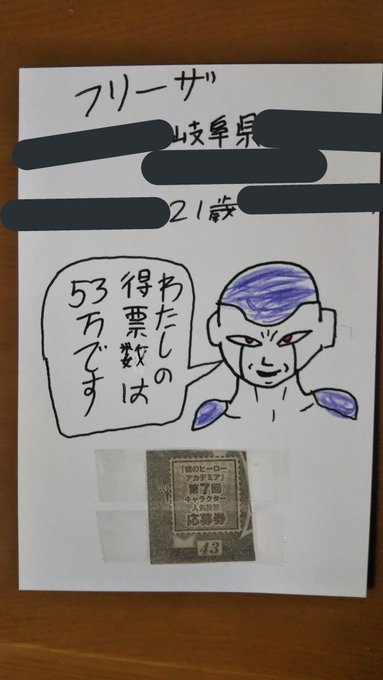 フリーザ
岐阜県
21歳
わたしの
得票数は
53万です
「僕のヒーロー
アカデミア」
第7回
キャラクター
人気投票
応募券
43